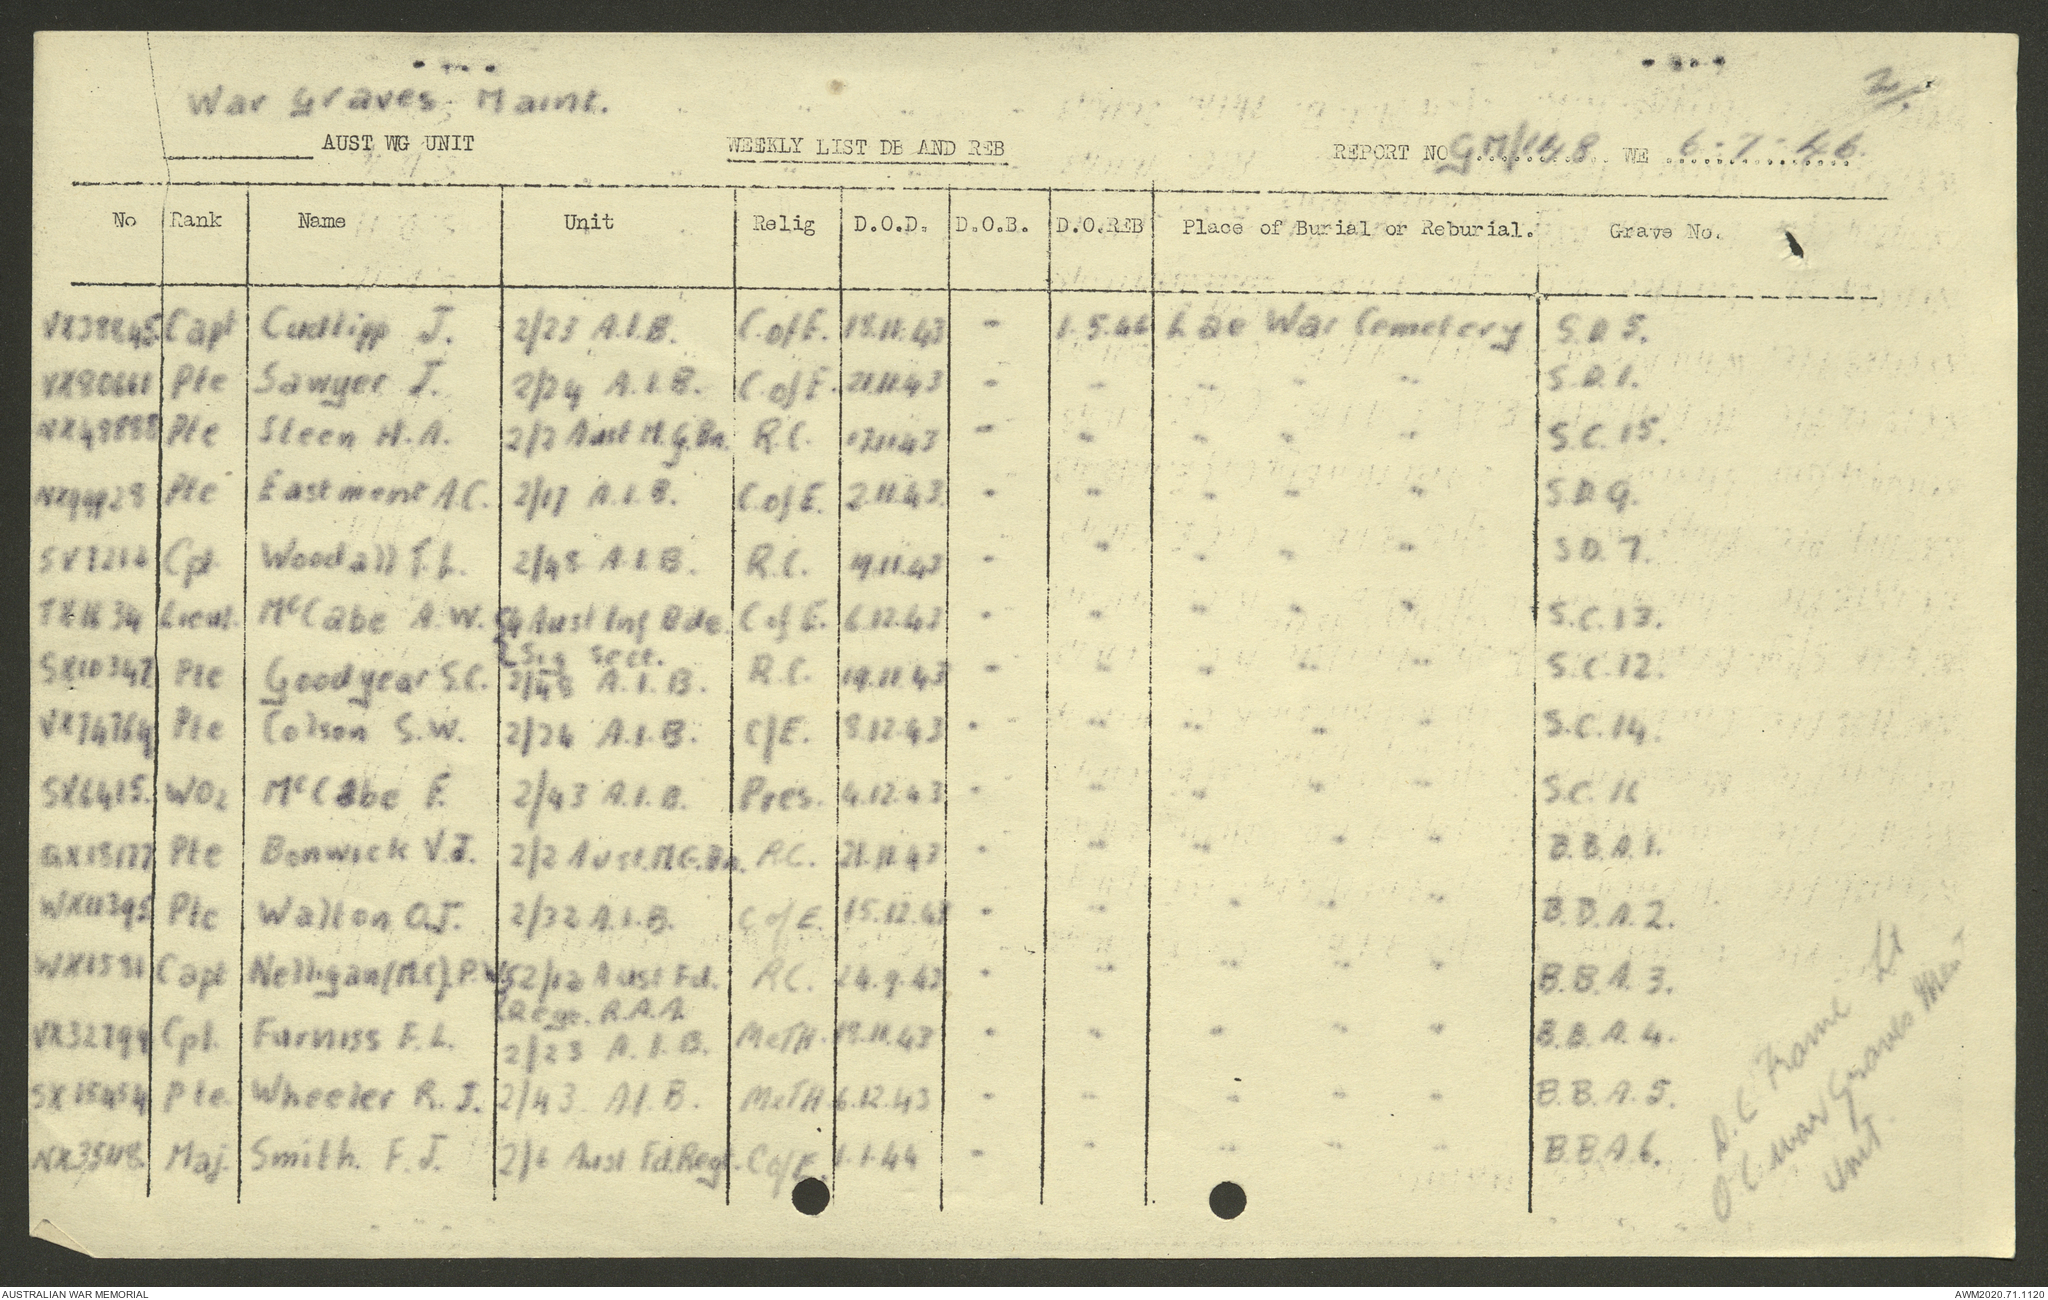 2/.
War Graves Maint.
AUST WG UNIT WEEKLY LIST DB AND REB REPORT NO GM/148 WE 6-7-46.
No Rank Name Unit Relig D.O.D. D.O.B. D.O.REB Place of Burial or Reburial. Grave No.
Capt Cudlipp J. 2/23 A.I.B. C.of E. 18.11.43 - 1.5.46 Lae War Cemetery S.D.5.
VX80661 Pte Sawyer J. 2/24 A.I.B. C.of E. 21.11.43 - " " " " S.D.1.
Pte Steen H.A. 2/2 Aust M.G.Bn. R.C. 17.11.43 - " " " " S.C.15.
Pte Eastment A.C. 2/17 A.I.B. C.of E. 2.11.43. - " " " " S.D.9.
Cpl. Woodall T.L. 2/48 A.I.B. R.C. 19.11.43 - " " " " S.D.7.
Lieut. McCabe A.W. Aust Inf Bde. C of E. 6.12.43 - " " " " S.C.13.
Sig Sect.
SX10347 Pte Goodyear S.C. 2/48 A.I.B. R.C. 19.11.43 - " " " " S.C.12.
VX74764 Pte Colson S.W. 2/24 A.I.B. C/E. 8.12.43 - " " " " S.C.14.
SX6415. WO2 McCabe F. 2/43 A.I.B. Pres. 4.12.43 - " " " " S.C.16
QX18177 Pte Bonwick V.J. 2/2 Aust.M.G.Bn. R.C. 21.11.43 - " " " " B.B.A.1.
WX11395 Pte Walton O.J. 2/32 A.I.B. C of E. 15.12.43 - " " " " B.B.A.2.
WX1591 Capt Nelligan (M.C). 2/12 Aust Fd. R.C. 24.9.43 - " " " " B.B.A.3.
(Rege. R.A.A.
VX32799 Cpl. Furniss F.L. 2/23 A.I.B. MeTH. 19.11.43 - " " " " B.B.A.4.
SX15454 Pte. Wheeler R.J. 2/43 A.I.B. MeTH 6.12.43 - " " " " B.B.A.5.
Maj. Smith. F.J. 2/6 Aust Fd.Regt. C of E. 1.1.44 - " " " " B.B.A.6.
Lt
O.C War Graves
Unit
AUSTRALIAN WAR MEMORIAL AWM2020.71.1120